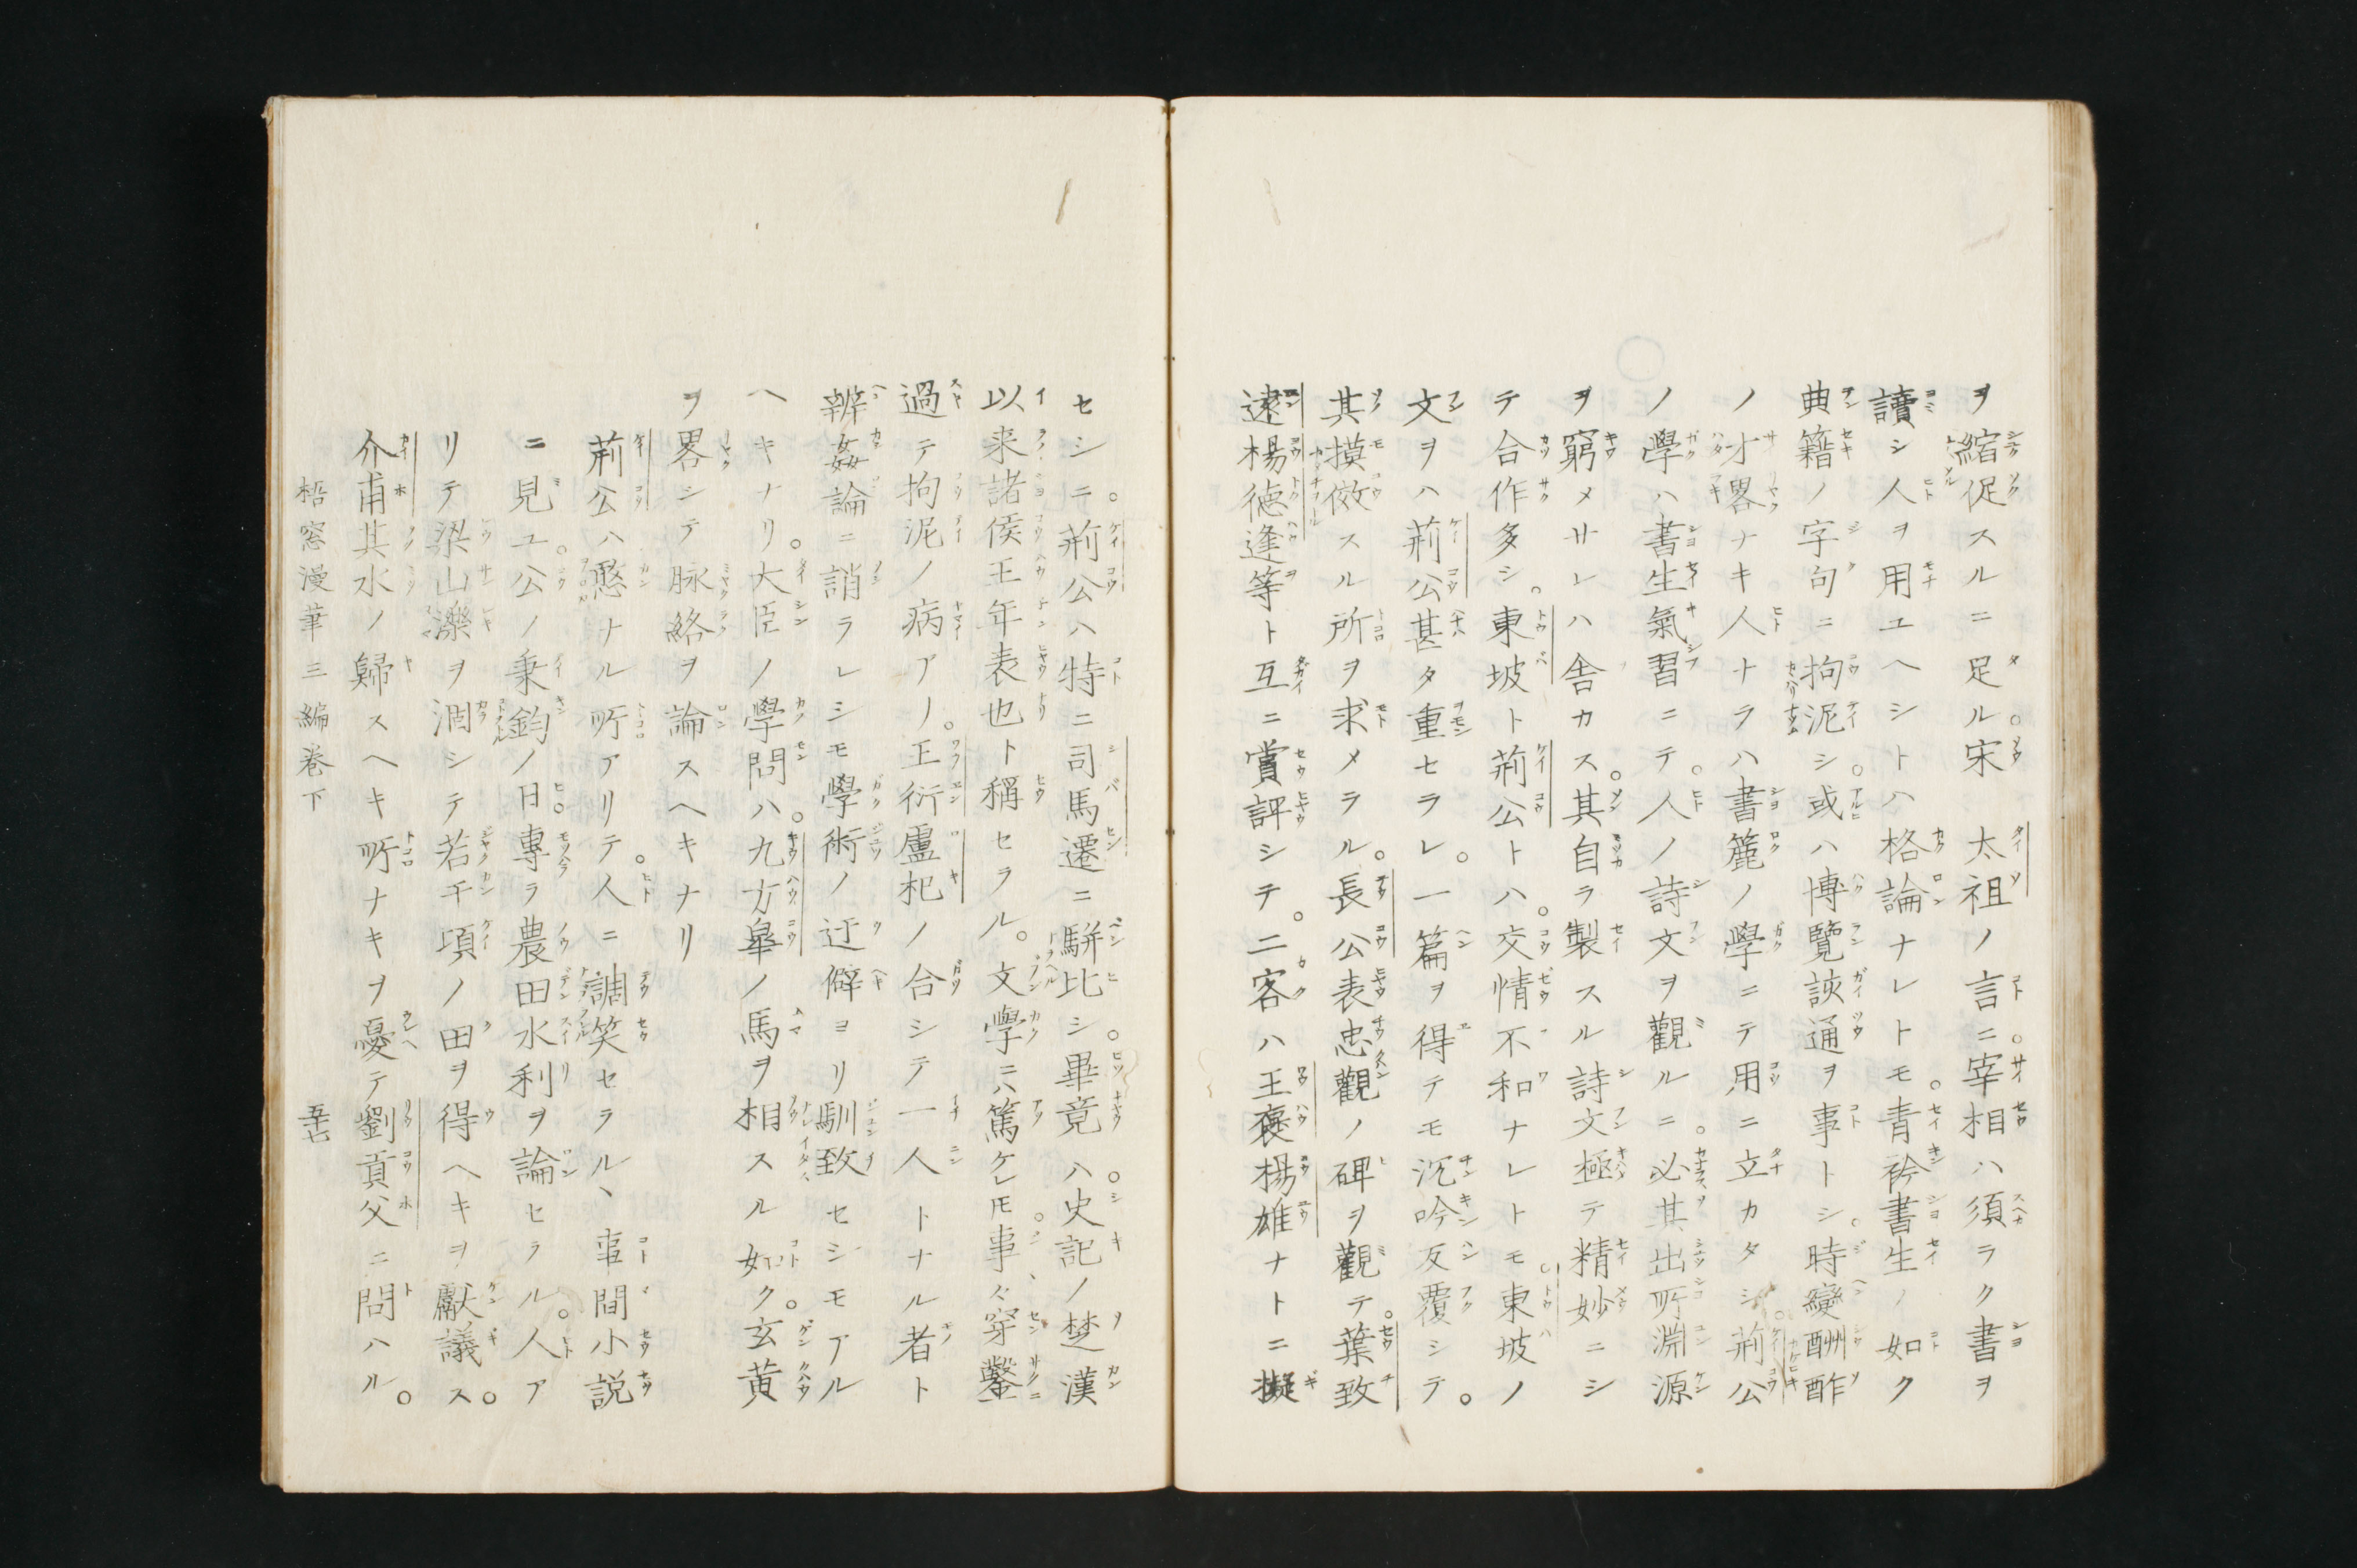 ヲ縮促スルニ足ル。宋　太祖ノ言ニ。宰相ハ須ラク書ヲ
讀シ人ヲ用ユヘシトハ格論ナレトモ。青衿書生ノ如ク
典籍ノ字句ニ拘泥シ。或ハ博覽該通ヲ事トシ。時變酬酢
ノ才畧ナキ人ナラハ書簏ノ學ニテ用ニ立カタシ。荊公
ノ學ハ書生氣習ニテ。人ノ詩文ヲ觀ルニ。必其出所淵源
ヲ窮メサレハ舎カス。其自ラ製スル詩文極テ精妙ニシ
テ合作多シ。東坡ト荊公トハ。交情不和ナレトモ東坡ノ
文ヲハ荊公甚タ重セラレ。一篇ヲ得テモ沉吟反覆シテ。
其摸倣スル所ヲ求メラル。長公表忠觀ノ碑ヲ觀テ。葉致
逺楊德逢等ト互ニ賞評シテ。二客ハ王褒楊雄ナトニ擬
セシニ。荊公ハ特ニ司馬遷ニ駢比シ。畢竟ハ。史記ノ楚漢
以来諸侯王年表也ト稱セラル。文學ニハ篤ケレ𪜈。事々穿鑿ニ
過テ拘泥ノ病アリ。王衍盧杞ノ合シテ一人トナル者ト
辨姦論ニ誚ラレシモ學術ノ迂僻ヨリ馴致セシモアル
ヘキナリ。大臣ノ學問ハ。九方皐ノ馬ヲ相スル如ク。玄黄
ヲ畧シテ脉絡ヲ論スヘキナリ
荊公ハ憨ナル所アリテ。人ニ調笑セラルヽ事間小説
ニ見ユ。公ノ秉鈞ノ日。專ラ農田水利ヲ論セラル。人ア
リテ梁山濼ヲ涸シテ若干頃ノ田ヲ得ヘキヲ獻議ス。
介甫其水ノ歸スヘキ所ナキヲ憂テ劉貢父ニ問ハル。
梧窓漫筆三編巻下　　　五十七